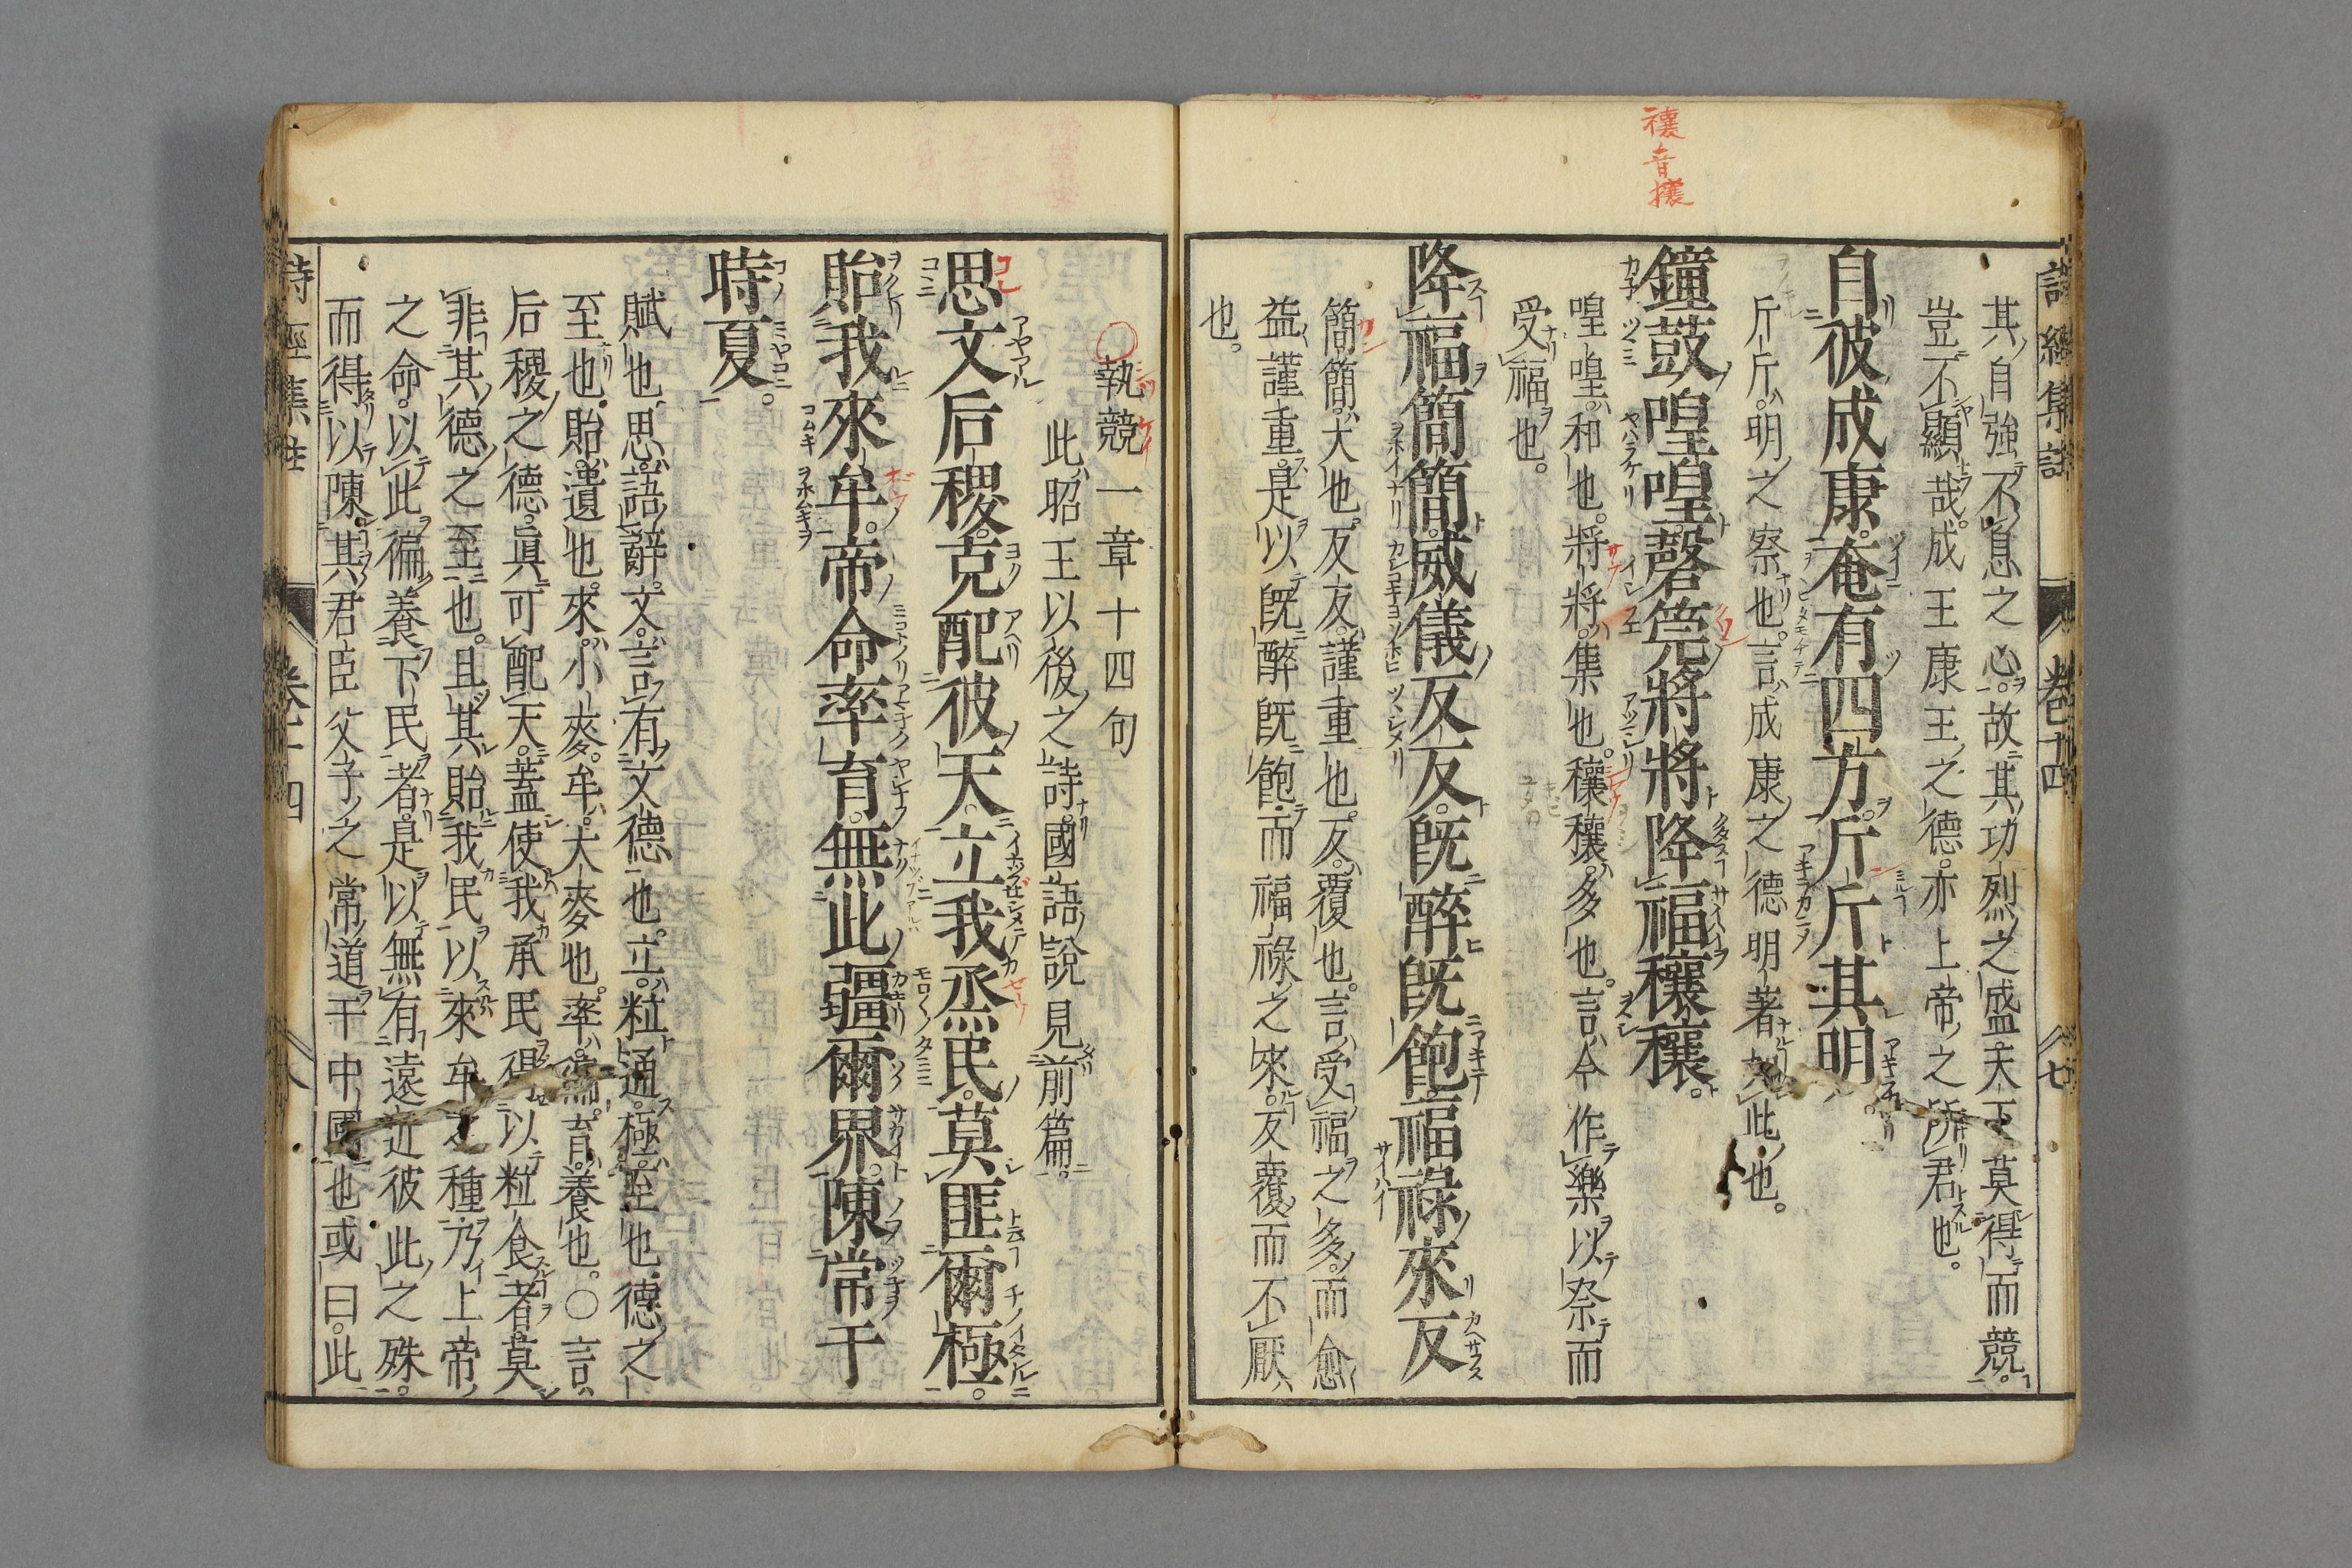 禳音攘
其自強不息之心。故其功烈之盛。天下莫得而競。
豈不顯哉。成王康王之德。亦上帝之所君也。
自彼成康。奄有四方。斤斤其明。
斤斤。明之察也。言成康之德明著如此也。
鐘鼓喤喤。磬筦將將。降福穰穰。
喤喤。和也。將將。集也。穰穰。多也。言今作樂以祭而
受福也。
降福簡簡。威儀反反。既醉既飽。福祿來反
簡簡。大也。反反。謹重也。反。覆也。言受福之多。而愈
益謹重。是以既醉既飽。而福祿之來。反覆而不厭
也。
執競一章十四句
此昭王以後之詩。國語說見前篇。
思文后稷。克配彼天。立我烝民。莫匪爾極。
貽我來牟。帝命率育。無此疆爾界。陳常于
時夏。
賦也。思。語辭。文。言有文德也。立。粒通。極。至也。德之
至也。貽。遺也。來。小麥。牟。大麥也。率。徧。育。養也。○言
后稷之德。真可配天。蓋使我烝民得以粒食者。莫
非其德之至也。且其貽我民以來牟之種。乃上帝
之命。以此徧養下民者。是以無有遠近彼此之殊。
而得以陳其君臣父子之常道于中國也。或曰。此
詩經集註
卷十四